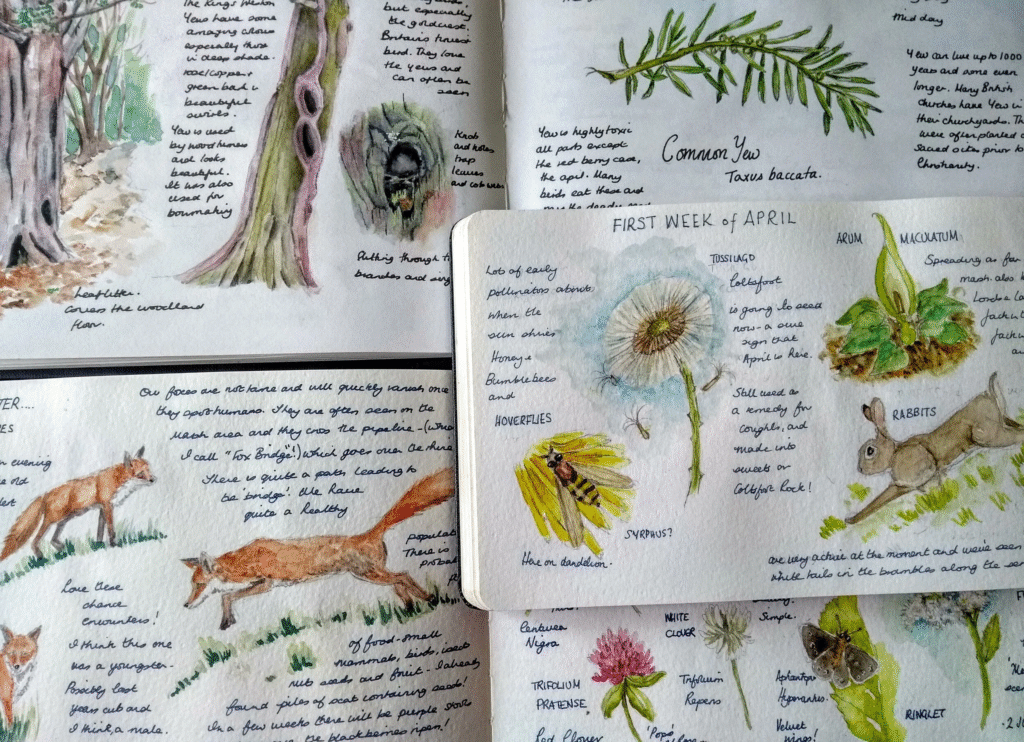 The Kings Weston
Yews have some
amazing colours
especially those
in deep shade.
rose/copper
green bark in
beautiful
swirls.
Yew is used
by wood turners
and looks
beautiful.
It was also
used for
bowmaking
Leaf litter.
covers the woodland
floor.
but especially
the goldcrest.
Britain's tiniest
bird. They love
the yews and
can often be
seen
Knob
and holes
trap
leaves
and cobwebs
Putting through
branches and
Mid day
Yew can live up to 1000
years and some even
longer. Many British
churches have Yew in
their churchyards.
were often planted
sacred sites prior to
Christianity.
Yew is highly toxic
all parts except
the red berry case,
the aril. Many
birds eat these and
Common Yew
Taxus baccata.
FIRST WEEK of APRIL
Lots of early
pollinators about
when the
sun shines
Honey +
Bumblebees
and
HOVERFLIES
SYRPHUS?
Here on dandelion.
TUSSILAGO
Coltsfoot
is going to seed
now - a sure
sign that
April is here.
Still used as
a remedy for
coughs, and
made into
sweets or
Coltsfoot Rock!
ARUM MACULATUM
Spreading as far
marsh. also
Lords + La
Jack in
Jack in
RABBITS
are very active at the moment and we've seen
white tails in the brambles along the
Our foxes are not tame and will quickly vanish once
they spot humans. They are often seen on the
Marsh area and they cross the pipeline - (what
I call "Fox Bridge"!) which goes over the rhine
There is quite a path leading to
the 'bridge'. We have
quite a healthy
populat
There is
probab
of food - small
mammals, birds, insects
nuts seeds and fruit - I already
found piles of scat containing seeds!
In a few weeks there will be purple
the blackberries ripen!
evening
Love these
chance
encounters!
I think this one
was a youngster.
Possibly last
years cub and
I think, a male.
Nigra
TRIFOLIUM
PRATENSE
Red Clover
WHITE
CLOVER
Trifolium
Repens
Simple.
Aphantopus
Hyperantus.
Velvet
wings!
RINGLET